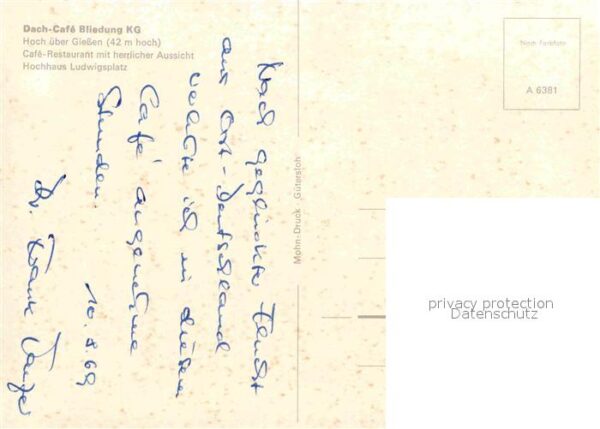 Dach-Café Bliedung KG
Hoch über Gießen (42 m hoch)
Café-Restaurant mit herrlicher Aussicht
Hochhaus Ludwigsplatz
Nach Farbfoto
A 6381
Mohn-Druck Gütersloh
Nach geglückter Flucht
aus Ost-Deutschland
verlebte ich in diesem
Café angenehme
Stunden.
10.8.69
Dr. Frank
privacy protection
Datenschutz